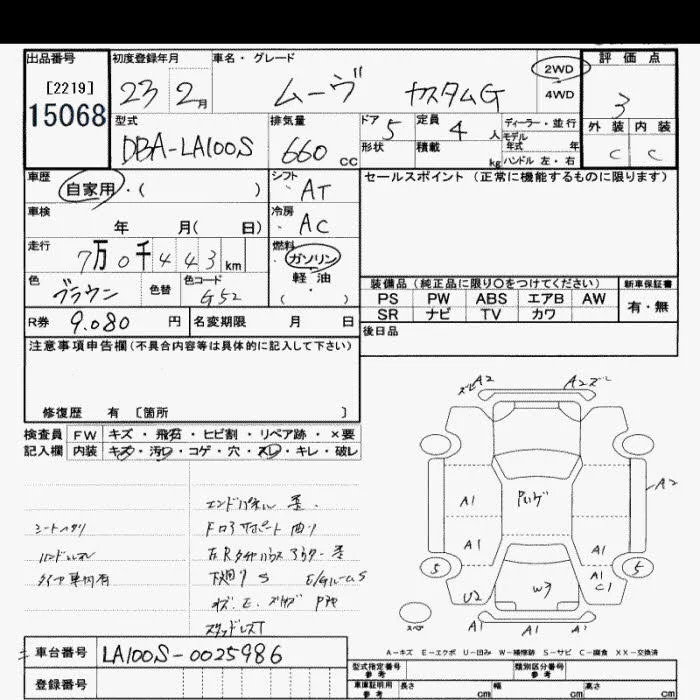 出品番号
[2219]
15068
初度登録年月
23 2月
車名・グレード
ムーヴ カスタムG
2WD
4WD
評価点
3
外装 内装
C C
型式
DBA-LA100S
排気量
660 cc
ドア 5
形状
定員 4 人
積載 kg
ディーラー・並行
モデル
年式 年
ハンドル 左・右
車歴
自家用・( )
シフト
AT
セールスポイント(正常に機能するものに限ります)
車検
年 月( 日)
冷房
AC
走行
7万0千443km
燃料
ガソリン
軽・油
( )
色
ブラウン
色替
色コード
G52
装備品(純正品に限り○をつけてください)
新車保証書
PS PW ABS エアB AW
SR ナビ TV カワ
有・無
R券 9.080 円
名変期限 月 日
後日品
注意事項申告欄(不具合内容等は具体的に記入して下さい)
修復歴 有 〔箇所 〕
検査員
記入欄
FW キズ・飛石・ヒビ割・リペア跡・×要
内装 キズ・汚レ・コゲ・穴・スレ・キレ・破レ
エンドパネル 歪.
シートヘタリ
Fロアサポート 曲り
ハンドルスレ
タイヤ車内有
下廻り S E/GルームS
スタッドレスT
A2
A2
A2
A1
A1
A1
A1
C1
U2
W3
S
S
A1
A1
A1
A-キズ E-エクボ U-凹み W-補修跡 S-サビ C-腐食 XX-交換済
車台番号
LA100S-0025986
登録番号
型式指定番号
参考
類別区分番号
参考
車庫証明用
参考
長さ cm
幅 cm
高さ cm